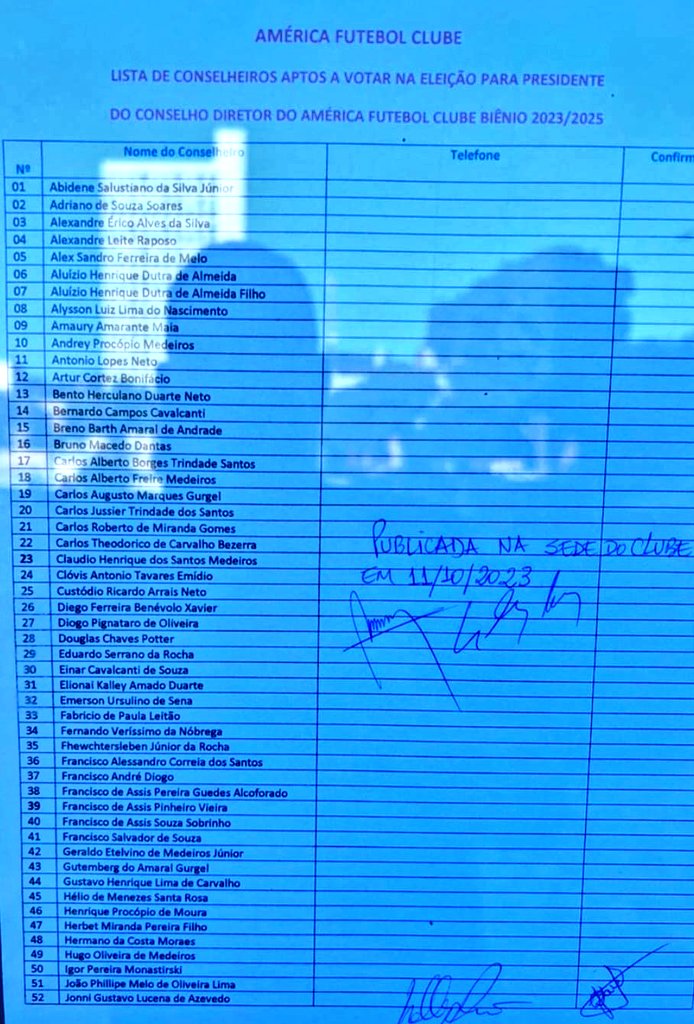 AMÉRICA FUTEBOL CLUBE
LISTA DE CONSELHEIROS APTOS A VOTAR NA ELEIÇÃO PARA PRESIDENTE
DO CONSELHO DIRETOR DO AMÉRICA FUTEBOL CLUBE BIÊNIO 2023/2025
Nº Nome do Conselheiro Telefone Confirm
01 Abidene Salustiano da Silva Júnior
02 Adriano de Souza Soares
03 Alexandre Érico Alves da Silva
04 Alexandre Leite Raposo
05 Alex Sandro Ferreira de Melo
06 Aluízio Henrique Dutra de Almeida
07 Aluízio Henrique Dutra de Almeida Filho
08 Alysson Luiz Lima do Nascimento
09 Amaury Amarante Maia
10 Andrey Procópio Medeiros
11 Antonio Lopes Neto
12 Artur Cortez Bonifácio
13 Bento Herculano Duarte Neto
14 Bernardo Campos Cavalcanti
15 Breno Barth Amaral de Andrade
16 Bruno Macedo Dantas
17 Carlos Alberto Borges Trindade Santos
18 Carlos Alberto Freire Medeiros
19 Carlos Augusto Marques Gurgel
20 Carlos Jussier Trindade dos Santos
21 Carlos Roberto de Miranda Gomes
22 Carlos Theodorico de Carvalho Bezerra
PUBLICADA NA SEDE DO CLUBE
23 Claudio Henrique dos Santos Medeiros
24 Clóvis Antonio Tavares Emídio
EM 11/10/2023
25 Custódio Ricardo Arrais Neto
26 Diego Ferreira Benévolo Xavier
27 Diogo Pignataro de Oliveira
28 Douglas Chaves Potter
29 Eduardo Serrano da Rocha
30 Einar Cavalcanti de Souza
31 Elionai Kalley Amado Duarte
32 Emerson Ursulino de Sena
33 Fabricio de Paula Leitão
34 Fernando Veríssimo da Nóbrega
35 Fhewchtersleben Júnior da Rocha
36 Francisco Alessandro Correia dos Santos
37 Francisco André Diogo
38 Francisco de Assis Pereira Guedes Alcoforado
39 Francisco de Assis Pinheiro Vieira
40 Francisco de Assis Souza Sobrinho
41 Francisco Salvador de Souza
42 Geraldo Etelvino de Medeiros Júnior
43 Gutemberg do Amaral Gurgel
44 Gustavo Henrique Lima de Carvalho
45 Hélio de Menezes Santa Rosa
46 Henrique Procópio de Moura
47 Herbet Miranda Pereira Filho
48 Hermano da Costa Moraes
49 Hugo Oliveira de Medeiros
50 Igor Pereira Monastirski
51 João Phillipe Melo de Oliveira Lima
52 Jonni Gustavo Lucena de Azevedo